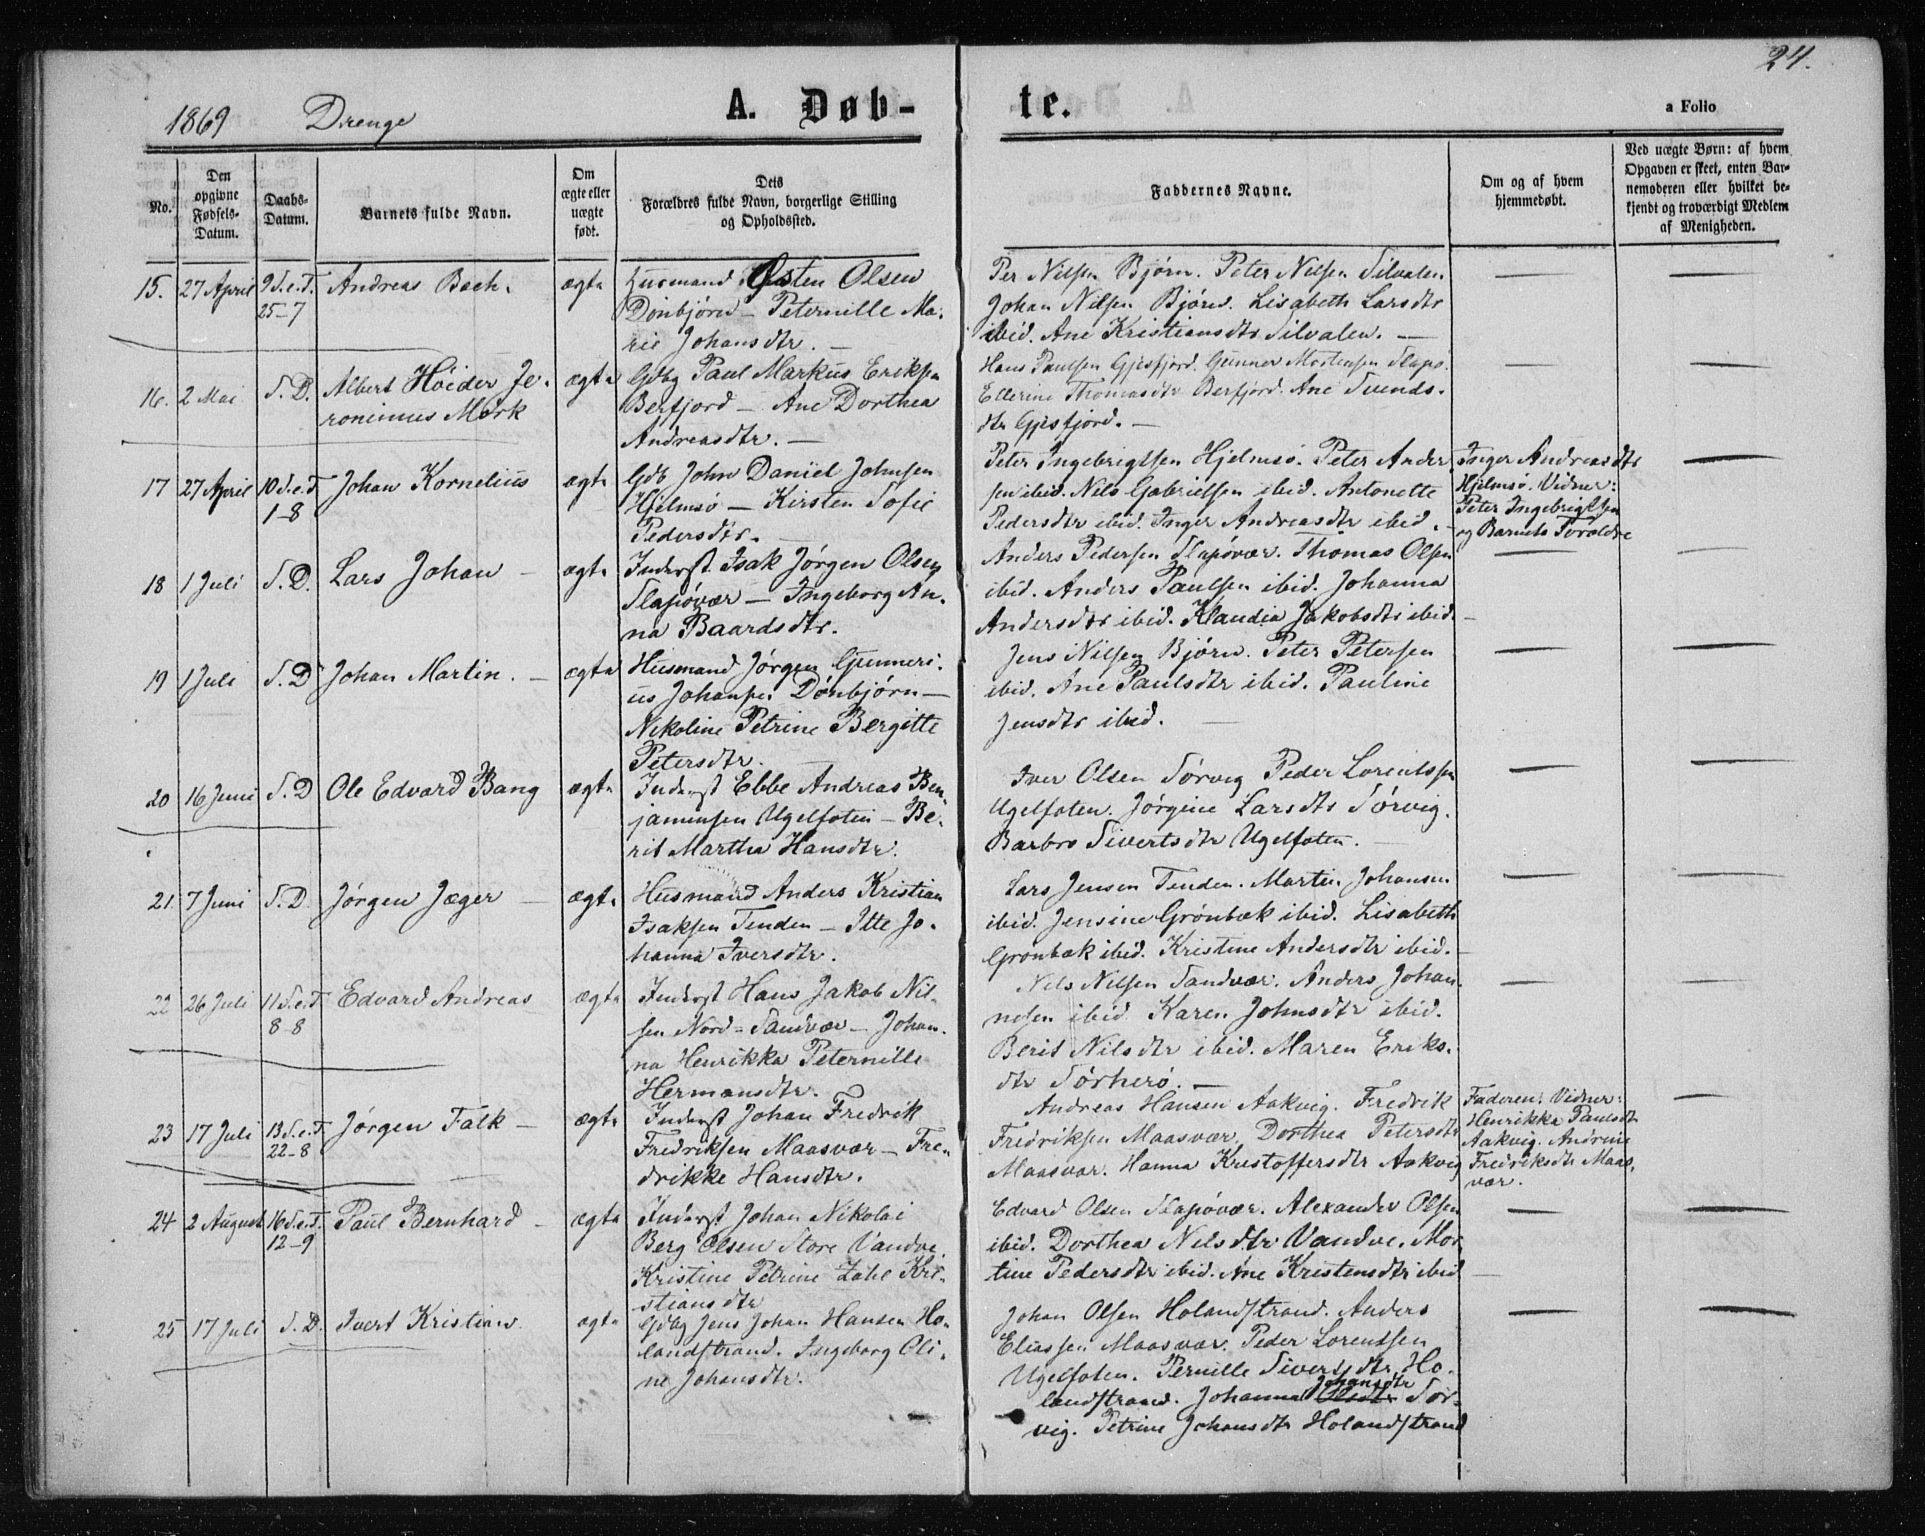 24.
1869 Drenge A. Døb-
te. a Folio
No.
Den opgivne Fødsels-Datum.
Daabs-Datum.
Barnets fulde Navn.
Om ægte eller uægte født.
Dets
Forældres fulde Navn, borgerlige Stilling
og Opholdssted.
Faddernes Navne.
Om og af hvem
hjemmedøbt.
Ved uægte Børn: af hvem
Opgaven er skeet, enten Bar-
nemoderen eller hvilket be-
kjendt og troværdigt Medlem
af Menigheden.
15. 27 April 9 S.e.T. 25-7 Andreas Bech. ægte
Husmand Østen Olsen
Dønbjørn – Peternille Ma-
rie Johansdtr. –
Per Nilsen Bjørn. Peter Nilsen Silvalen
Johan Nilsen Bjørn. Lisabeth Larsdtr
ibid. Ane Kristiansdtr Silvalen. –
16. 2 Mai S.D. Albert Höider Je-
ronimus Mørk ægte
Gdbg Paul Markus Eriksen
Berfjord – Ane Dorthea
Andreasdtr. –
Hans Paulsen Gjesfjord. Gunner Mortensen Slapø.
Ellerine Thomasdtr Berfjord. Ane Svends-
dtr Gjesfjord. –
17 27 April 10 S.e.T 1-8 Johan Kornelius ægte
Gdb John Daniel Johnsen
Hjelmsø – Kirsten Sofie
Pedersdtr. –
Peter Ingebrigtsen Hjelmsø. Peter Ander-
sen ibid. Nils Gabrielsen ibid. Antonette
Pedersdtr ibid. Inger Andreasdtr ibid. –
Inger Andreasdtr
Hjelmsø. Vidner:
Peter Ingebrigtsen
og Barnets Foræ­ldre
18 1 Juli S.D. Lars Johan – ægte
Inderst Isak Jørgen Olsen
Slapøvær – Ingeborg An-
na Baardsdtr.
Anders Pedersen Slapøvær. Thomas Olsen
ibid. Anders Paulsen ibid. Johanna
Andersdtr ibid. Klaudia Jakobsdtr ibid. –
19 1 Juli S.D Johan Martin. – ægte
Husmand Jørgen Gunneri-
us Johansen Dønbjørn –
Nikoline Petrine Bergitte
Petersdtr.
Jens Nilsen Bjørn. Peter Petersen
ibid. Ane Paulsdtr ibid. Pauline
Jensdtr ibid. –
20 16 Juni S.D Ole Edvard Bang ægte
Inderst Ebbe Andreas Ben-
jaminsen Ugelfoten – Be-
rit Martha Hansdtr.
Iver Olsen Sørvig Peder Lorentsen
Ugelfoten. Jørgine Larsdtr Sørvig.
Barbro Sivertsdtr Ugelfoten. –
21. 7 Juni S.D. Jørgen Jæger – ægte
Husmand Anders Kristian
Isaksen Tenden – Itte Jo-
hanna Iversdtr.
Lars Jensen Tenden. Martin Johansen
ibid. Jensine Grønbæk ibid. Lisabeth
Grønbæk ibid. Kristine Andersdtr ibid. –
22 26 Juli 11 S.e.T 8-8 Edvard Andreas ægte
Inderst Hans Jakob Nil-
sen Nord-Sandvær – Johan-
na Henrikka Peternille
Hermansdtr.
Nels Nilsen Sandvær. Anders Johan-
nesen ibid. Karen Johnsdtr ibid.
Berit Nilsdtr ibid. Maren Eriks-
dtr Sørherø. –
23 17 Juli 13 S.e.T. 22-8 Jørgen Falk – ægte
Inderst Johan Fredrik
Fredriksen Maasvær – Fre-
drikke Hansdtr.
Andreas Hansen Aakvig. Fredrik
Fredriksen Maasvær. Dorthea Petersdtr
Maasvær. Hanna Kristoffersdtr Aakvig
Faderen: Vidner:
Henrikka Paulsdtr
Aakvig. Andrine
Fredriksdtr Maas-
vær.
24 2 August 16 S.e.T. 12-9 Paul Bernhard – ægte
Inderst Johan Nikolai
Berg Olsen Store Vandve.
Kristine Petrine Zahl Kri-
stiansdtr
Edvard Olsen Slapøvær. Alexander Olsen
ibid. Dorthea Nilsdtr Vandve. Mor-
tine Pedersdtr ibid. Ane Kristensdtr ibid –
25 17 Juli S.D. Ivert Kristian ægte
Gdbg Jens Johan Hansen Ho-
landstrand. Ingeborg Oli-
ne Johansdtr.
Johan Olsen Holandstrand. Anders
Eliassen Maasvær. Peder Lorentsen
Ugelfoten. Pernille Sivertsdtr Ho-
landstrand. Johanna Johansdtr Sør-
vig. Petrine Johansdtr Holandstrand